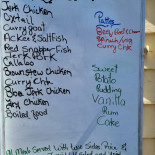 Jerk Chicken
Oxtail
Curry Goat
Ackee & Saltfish
Red Snapper Fish
Jerk Pork
Callaloo
Brown Stew Chicken
Curry Chk
BBQ Jerk Chicken
Fry Chicken
Boiled Food
Patties
Curry Chk
Sweet
Potato
Pudding
Vanilla
Rum
Cake
All Meals Served With two Sides Rice &